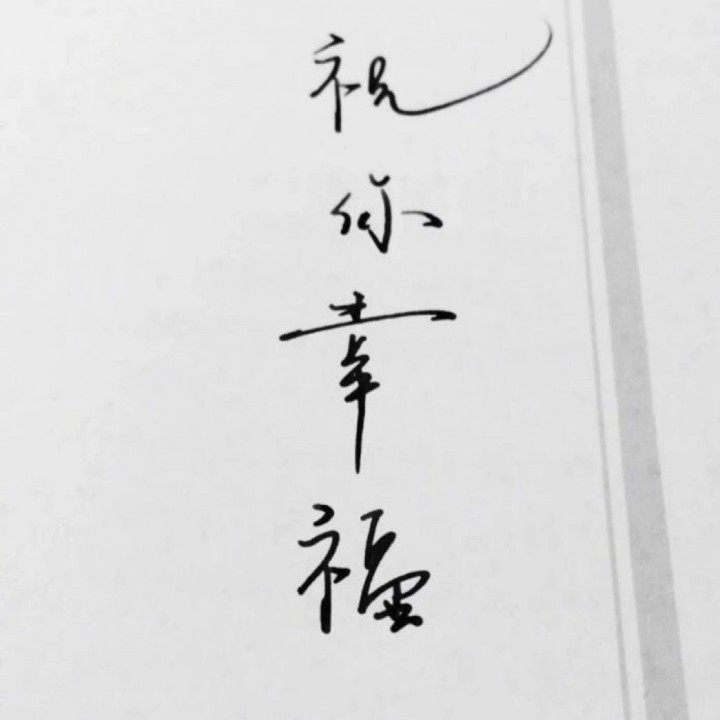 祝你幸福